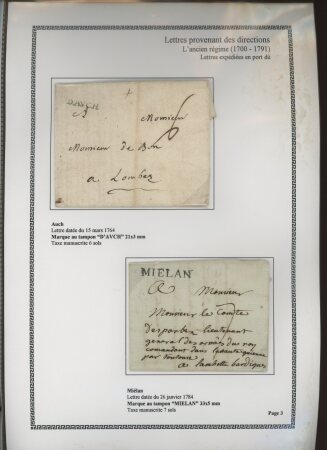 Lettres provenant des directions
L'ancien régime (1700 - 1791)
Lettres expédiées en port dû
D'AVCH
A Monsieur
Monsieur de Bon
a Lombez
Auch
Lettre datée du 15 mars 1764
Marque au tampon "D'AVCH" 21x3 mm
Taxe manuscrite 6 sols
MIELAN
A Monsieur
Monsieur le Comte
desparbes lieutenant
general des armées du roy
comandant dans la haute guienne
par toulouse
a
Miélan
Lettre datée du 26 janvier 1784
Marque au tampon "MIELAN" 33x5 mm
Taxe manuscrite 7 sols
Page 3